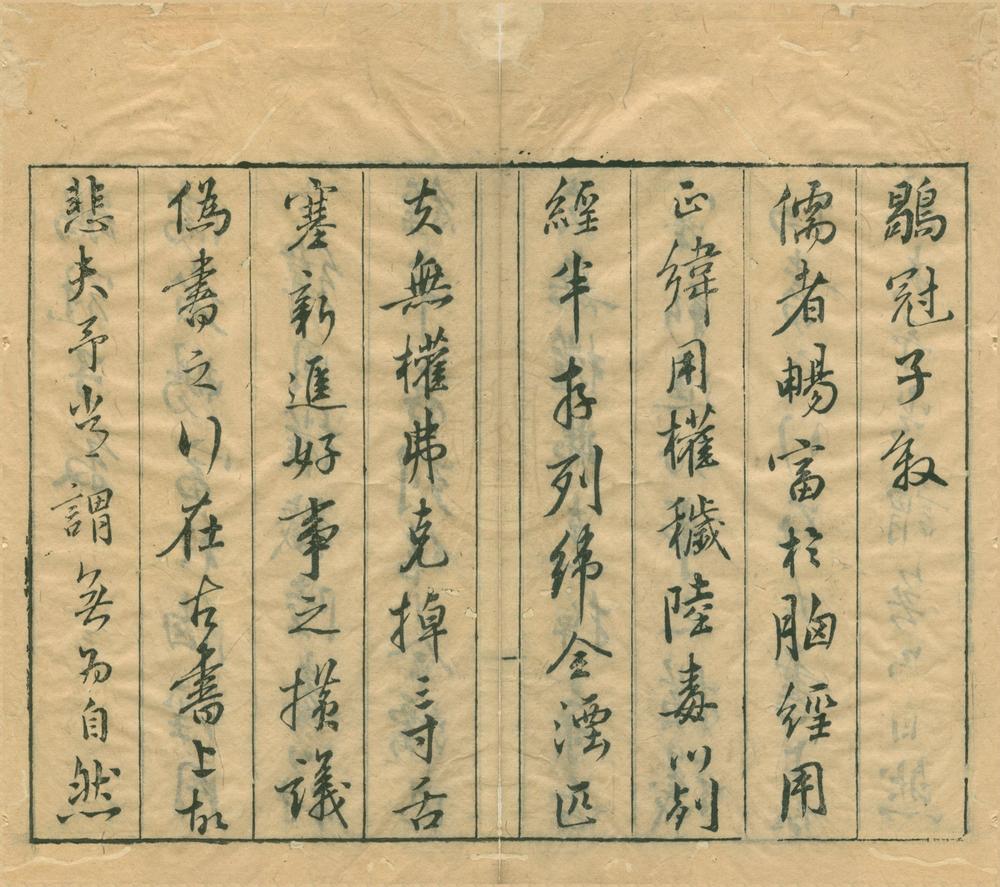 鶡冠子敘
儒者暢富於胸經用
正緯用權穢陸毒以列
經半存列緯全湮匹
夫無權弗克掉三寸舌
塞新進好事之橫議
偽書之行在古書上故
悲夫予嘗謂無為自然